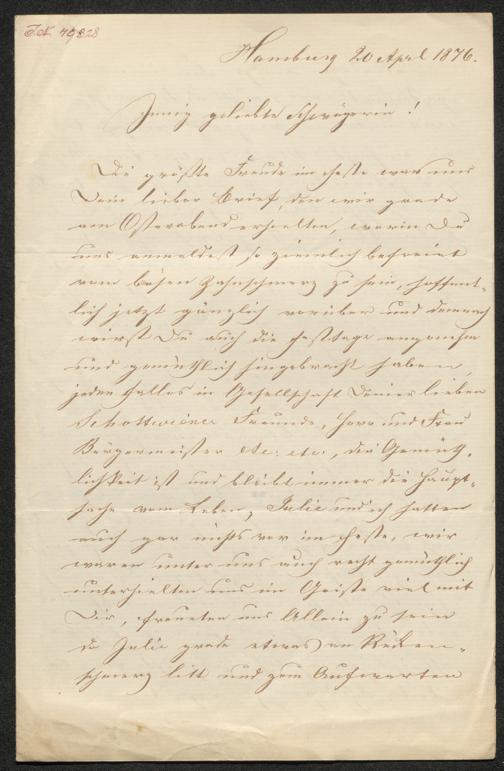 Hamburg 20 April 1876.
Innig geliebte Schwägerin!
Die größte Freude im Feste war uns
Dein lieber Brief, den wir grade
am Osterabend erhielten, worin Du
uns anmeldest so ziemlich befreit
vom bösen Zahnschmerz zu sein, hoffent-
lich jetzt gänzlich vorüber und demnach
wirst Du auch die Festtage angenehm
und gemüthlich hingebracht haben,
jeden Falles in Gesellschaft Deiner lieben
Schottwiener Freunde, Herr und Frau
Bürgermeister etc: etc:, die Gemüth-
lichkeit ist und bleibt immer die Haupt-
sache vom Leben, Julie und ich hatten
auch gar nichts vor im Feste, wir
waren unter uns auch recht gemüthlich
unterhielten uns im Geiste viel mit
Dir, freueten uns Allein zu sein
da Julie grade etwas an Rücken-
schmerz litt und zum Aufwarten